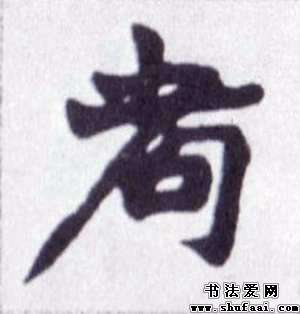 耇
书法爱网
www.shufaai.com